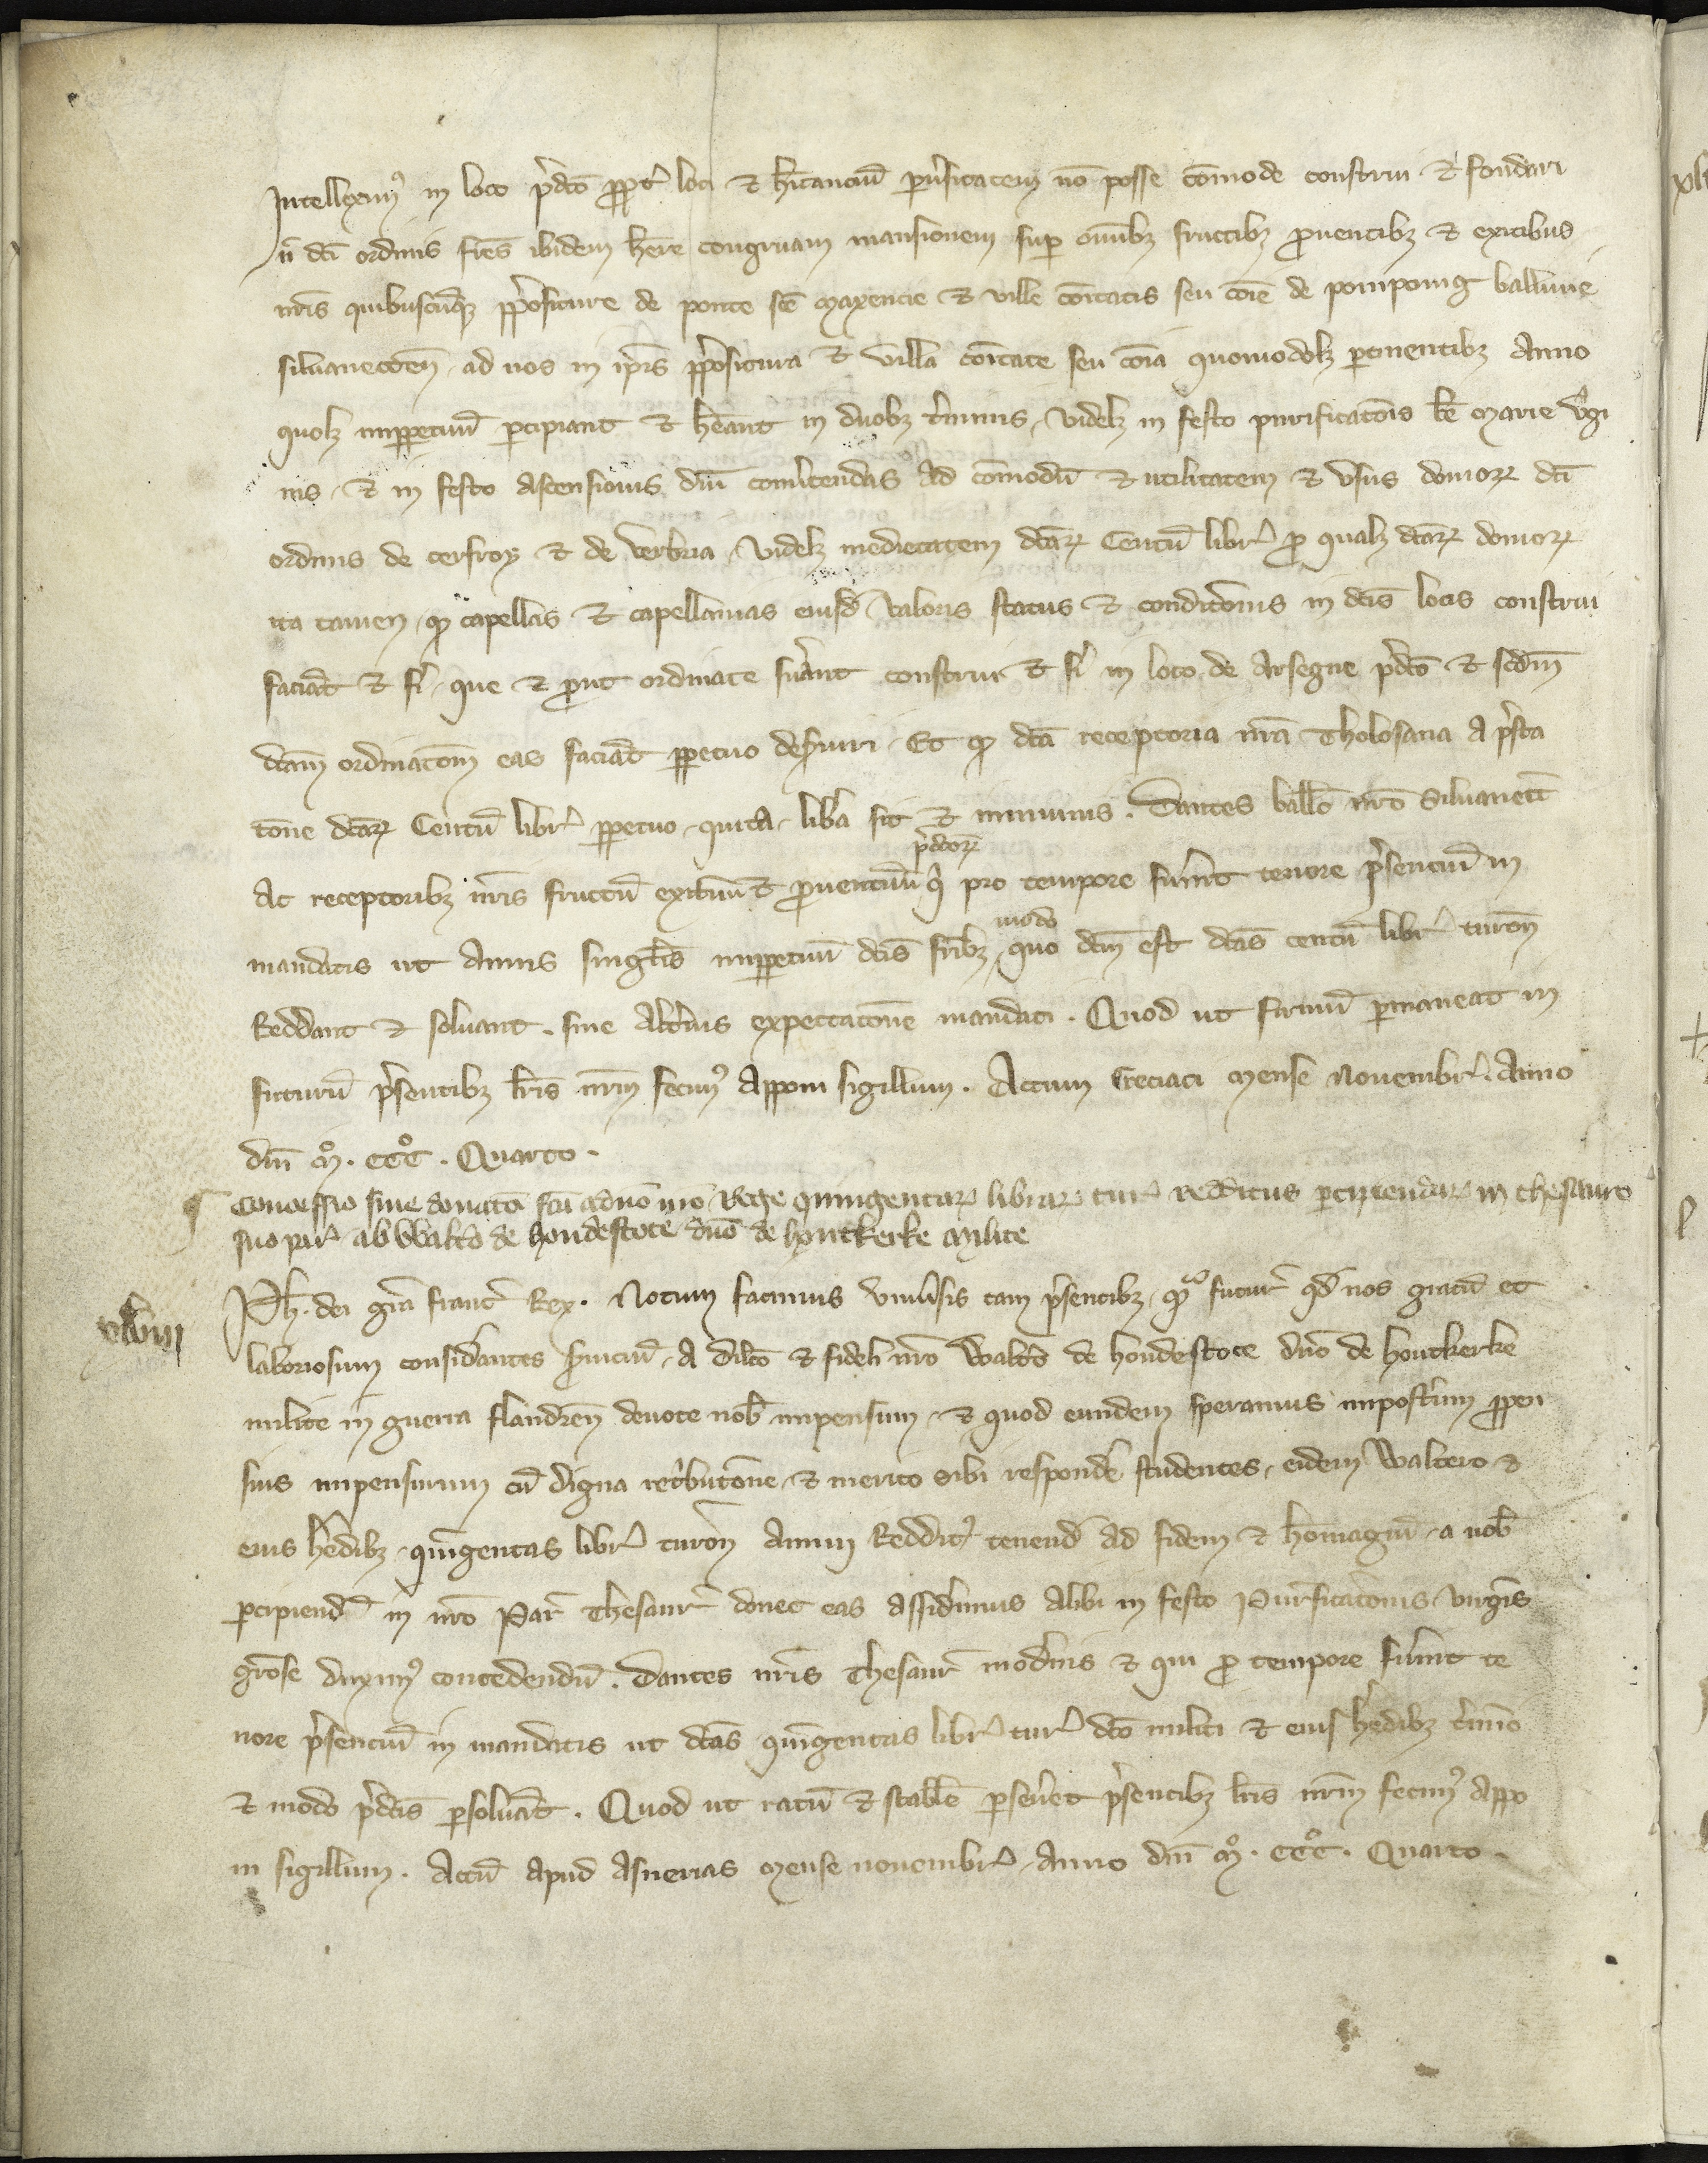 Intellexim9 in loco p̃dc̃o ꝓpt̃ loci ⁊ hĩtanciũ puersitatem nõ posse cõmode construi ⁊ fundari
ñ dc̃i ordinis fr̃es ibidem hẽre congruam mansionem sup om̃ibꝫ fructibꝫ ꝓuentibꝫ ⁊ exitibus
nr̃is quibuscũqꝫ p̃positure de ponte sc̃e Maxencie ⁊ ville cõitatis seu cõie de pompoing balliuie
siluanectẽn ad nos in ip̃is p̃positura ⁊ villa cõitate seu cõia quomodolꝫ ꝑtinentibꝫ Anno
quolꝫ imꝑpetuũ ꝑcipiant ⁊ hẽant in duobꝫ t̃minis, videlꝫ in festo purificatõis bẽ Marie v̾gi
nis, ⁊ in festo Ascensionis dñi comiteendas Ad cõmodũ ⁊ utilitatem ⁊ vsus domoꝝ dc̃i
ordinis de cerfroy ⁊ de verbria, videlꝫ medietatem dc̃aꝝ Centũ libr̃ ꝓ qualꝫ dc̃aꝝ domoꝝ
ita tamen, qꝫ capellas ⁊ capellanias eiusd̃ valoris status ⁊ condic̃onis in dc̃is locis construi
faciãt ⁊ fi̾, que ⁊ ꝓut ordinate fu̾ant construi ⁊ fi̾ in loco de Arsegne p̃dc̃o ⁊ scdm̃
dc̃am ordinac̃om eas faciãt ꝑpetuo des̾uiri. Et qꝫ dc̃a receptoria nr̃a Tholosana A p̃sta
c̃one dc̃aꝝ Centũ libr̃ ꝑpetuo, quita, lib̾a sit ⁊ immunis. Dantes ball̃o nr̃o Siluanect̃
p̃dc̃oꝝ
Ac receptoribꝫ nr̃is fructuũ exituũ ⁊ ꝓuentuũ q̾ pro tempore fu̾int tenore p̃senciũ in
modo
mandatis ut Annis singl̃is imꝑpetuũ dc̃is fr̃ibꝫ, quo dc̃m est dc̃as centũ libr̃ turoñ
Reddant ⁊ soluant. sine Alt̾ius expectatõne mandati. Quod ut firmũ ꝑmaneat in
futurũ p̃sentibꝫ lr̃is nr̃m fecim9 Apponi sigillum. Actum Creciaci Mense Nouembr̃. Anno
dñi Mº. CCCº. Quarto.
Concessio siue donatõ fc̃a a dño nr̃o Rege quingentaꝝ libraꝝ tur̃ redditus ꝑcipiendaꝝ in thesauro
suo par̃ ab Walt̃o de hondescote dño de houtkerke Milite
xlviii
Ph̃. dei gr̃a francr̃ Rex. Notum facimus vniu̾sis tam p̃sentibꝫ, qᷓ futur̃ qd̃ nos gratũ et
laboriosum consid̾antes s̾uiciũ, A dilc̃o ⁊ fideli nr̃o Walt̃o de hondescote dño de houtkerke
milite in guerra flandreñ deuote nob̃ impensum, ⁊ quod eundem speramus impost̾um ꝓpen
sius impensurum cũ digna ret̾butõne, ⁊ merito sibi respond̾e studentes, eidem Waltero ⁊
eius h̾edibꝫ, quĩgentas libr̃ turoñ Annui Reddit9 tenend̃ ad fidem ⁊ homagiũ, a nob̃
ꝑcipiend̃ in nr̃o Par̃ Thesaur̃ donec eas Assid̾imus Alibi in festo Purificatõnis virgĩs
gr̃ose duxim9 concedendũ. Dantes nr̃is Thesaur̃ mod̾nis ⁊ qui ꝓ tempore fu̾int te
nore p̃senciũ in mandatis ut dc̃as quĩgentas libr̃ tur̃ dc̃o militi ⁊ eius h̾edibꝫ t̾mino
⁊ modo p̃dc̃is ꝑsoluãt. Quod ut ratũ ⁊ stabl̃e ꝑseu̾et p̃sentibꝫ lr̃is nr̃m fecim9 Appo
ni sigillum. Actũ apud Asnerias Mense nouembr̃, Anno dñi Mº. CCCº. Quarto.